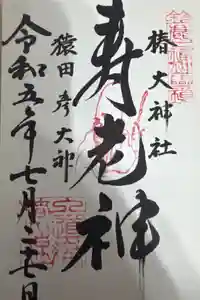 椿大神社
寿老神
猿田彦大神
令和五年七月二七日